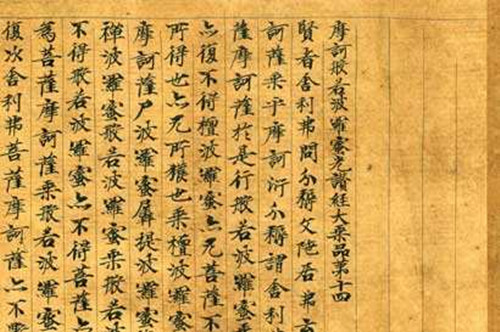 摩訶般若波羅蜜光讚經大乘品第十四
賢者舍利弗問分耨文陀尼弗言
訶薩乘乎摩訶衍分耨謂舍利
薩摩訶薩於是行般若波羅蜜
亦復不得檀波羅蜜亦无菩薩
所得也亦无所猗也乘檀波羅蜜
摩訶薩尸波羅蜜羼提波羅蜜
禪波羅蜜般若波羅蜜乘般若
不得般若波羅蜜亦不得菩薩
為菩薩摩訶薩乘般若波羅蜜
復次舍利弗菩薩摩訶薩亦不